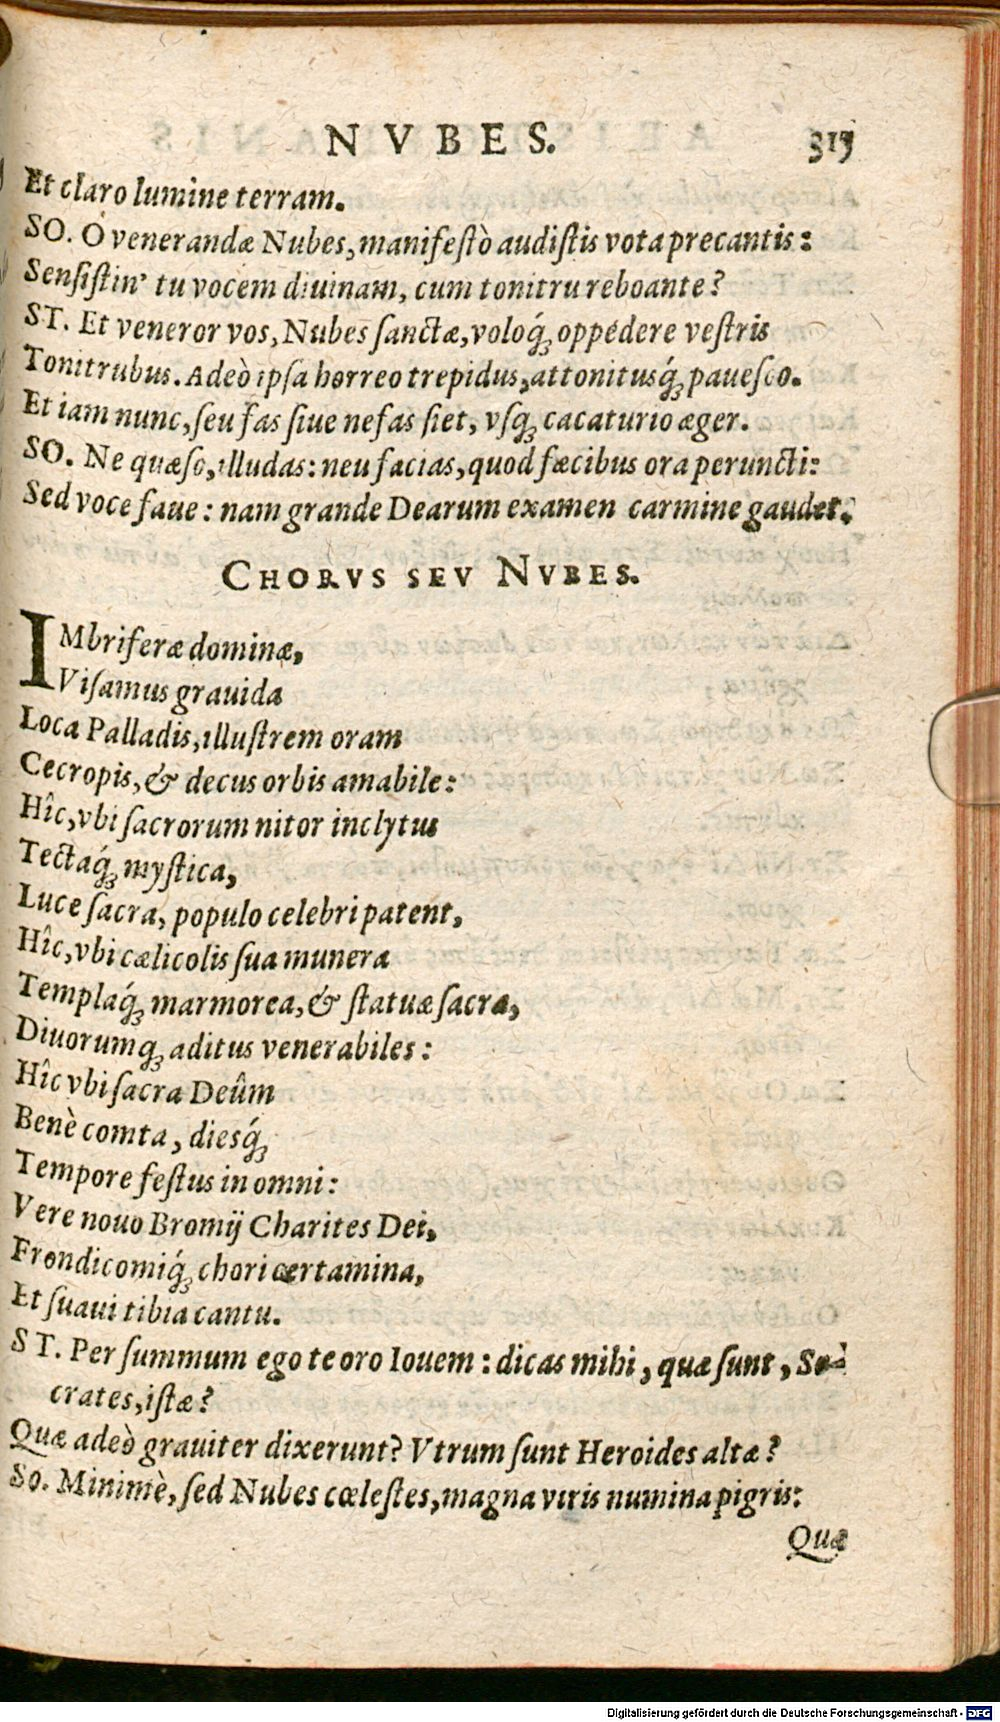 NVBES. 315
Et claro lumine terram.
SO. Ô venerandæ Nubes, manifestò audistis vota precantis:
Sensistin' tu vocem diuinam, cum tonitru reboante?
ST. Et veneror vos, Nubes sanctæ, voloq́; oppedere vestris
Tonitrubus. Adeò ipsa horreo trepidus, attonitusq́; pauesco.
Et iam nunc, seu fas siue nefas siet, vsq; cacaturio æger.
SO. Ne quæso, illudas: neu facias, quod fæcibus ora peruncti:
Sed voce faue: nam grande Dearum examen carmine gaudet.
CHORVS SEV NVBES.
IMbriferæ dominæ,
Visamus grauida
Loca Palladis, illustrem oram
Cecropis, & decus orbis amabile:
Hîc, vbi sacrorum nitor inclytus
Tectaq́; mystica,
Luce sacra, populo celebri patent,
Hîc, vbi cælicolis sua munera
Templaq́; marmorea, & statuæ sacra,
Diuorumq; aditus venerabiles:
Hîc vbi sacra Deûm
Benè comta, diesq́;
Tempore festus in omni:
Vere nouo Bromij Charites Dei,
Frondicomiq́; chori certamina,
Et suaui tibia cantu.
ST. Per summum ego te oro Iouem: dicas mihi, quæ sunt, So-
crates, istæ?
Quæ adeò grauiter dixerunt? Vtrum sunt Heroides altæ?
So. Minimè, sed Nubes cœlestes, magna viris numina pigris:
Quæ
Digitalisierung gefördert durch die Deutsche Forschungsgemeinschaft - DFG